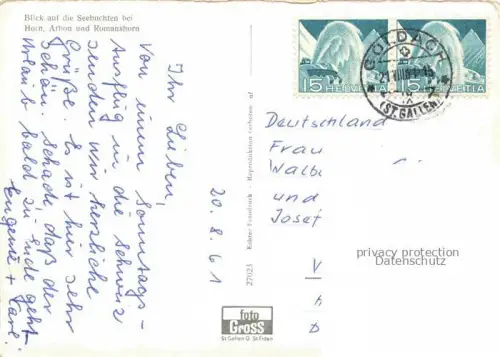 Blick auf die Seebuchten bei
Horn, Arbon und Romanshorn
Ihr Lieben,
Von einem Sonntags-
Ausflug in die Schweiz
senden wir herzliche
Grüße. Es ist hier sehr
schön. Schade daß der
Urlaub bald zu Ende geht
Eugenie + Karl.
20.8.61
27023
Echter Fotodruck - Reproduktion verboten
foto
GROSS
St Gallen O. St Fiden
15 HELVETIA
15 HELVETIA
GOLDACH
(ST. GALLEN)
Deutschland
Frau
Walbu
und
Josef
privacy protection
Datenschutz